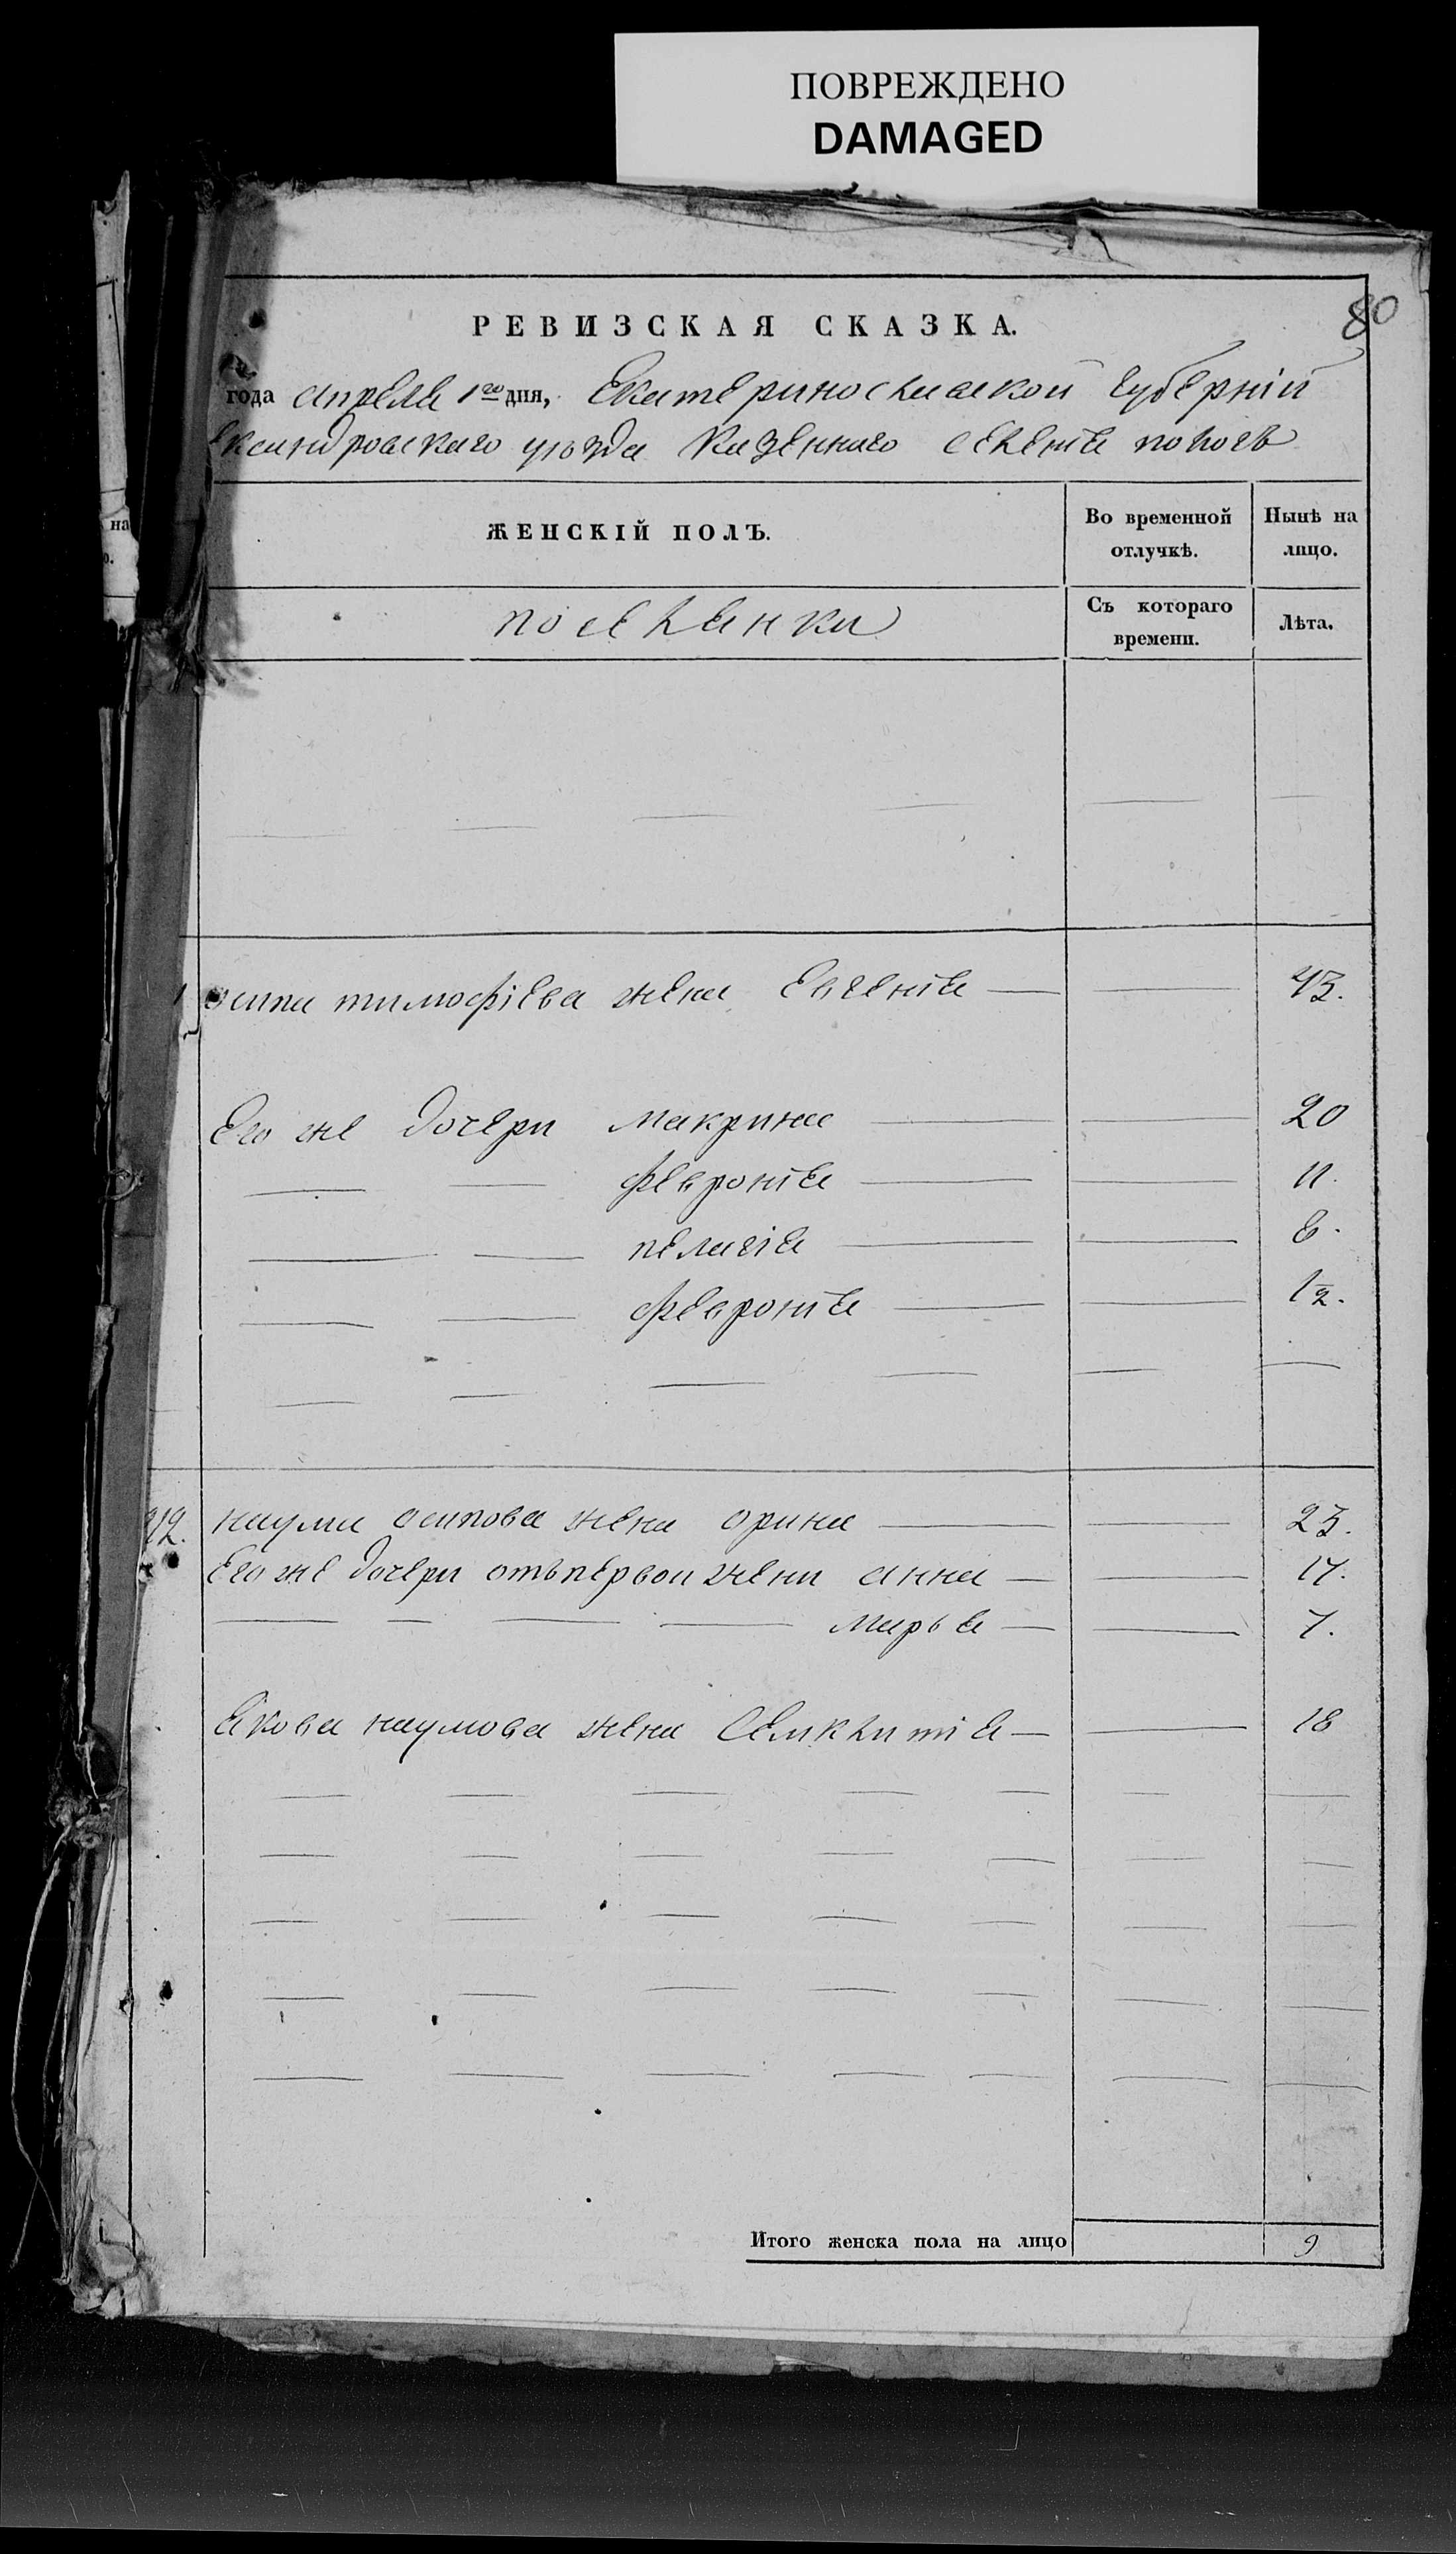 ПОВРЕЖДЕНО
DAMAGED
80
РЕВИЗСКАЯ СКАЗКА.
года апреля 1го дня, Екатеринославской губернiй
ександровскаго уѣзда Казенного селенiя пологъ
на
о.
ЖЕНСКІЙ ПОЛЪ.
Во временной отлучкѣ.
Нынѣ на лицо.
поселянки
Съ котораго времени.
Лѣта.
осипа тимофiева жена Евгенiя 43.
Его же дочери макрина 20
февронiя 11.
пелагiя 8.
февронiя 1/2.
212. наума осипова жена орина 23.
Его же дочери отъ первои жени анна 17.
марья 7.
якова наумова жена 18
Итого женска пола на лицо 9